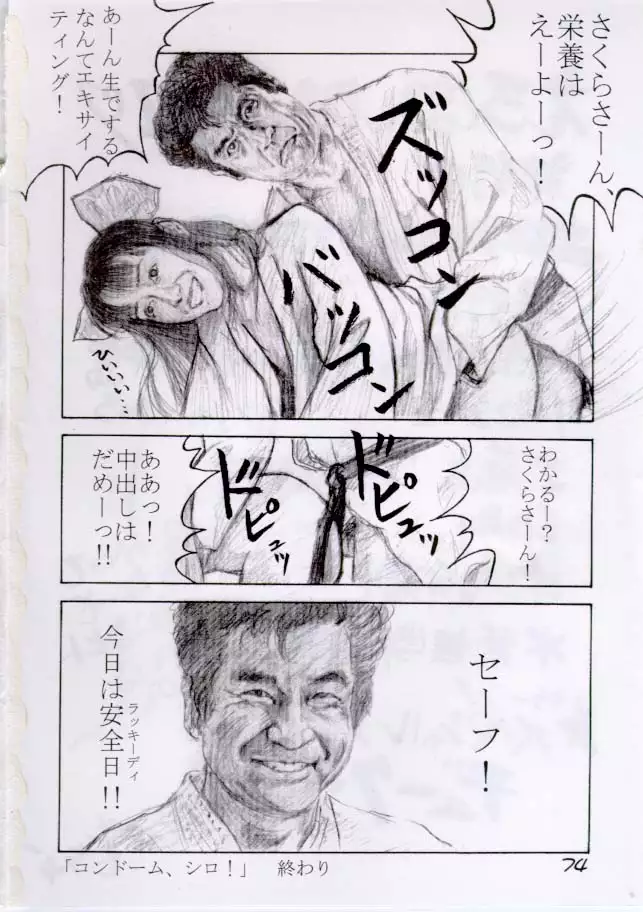 さくらさーん、
栄養は
えーよーっ！
ズッコン
バッコン
あーん生でする
なんてエキサイ
ティング！
ひぃぃぃ…
わかるー？
さくらさーん！
ドピュッ
ドピュッ
ああっ！
中出しは
だめーっ!!
セーフ！
今日は安全日!!
ラッキーデイ
「コンドーム、シロ！」　終わり
74